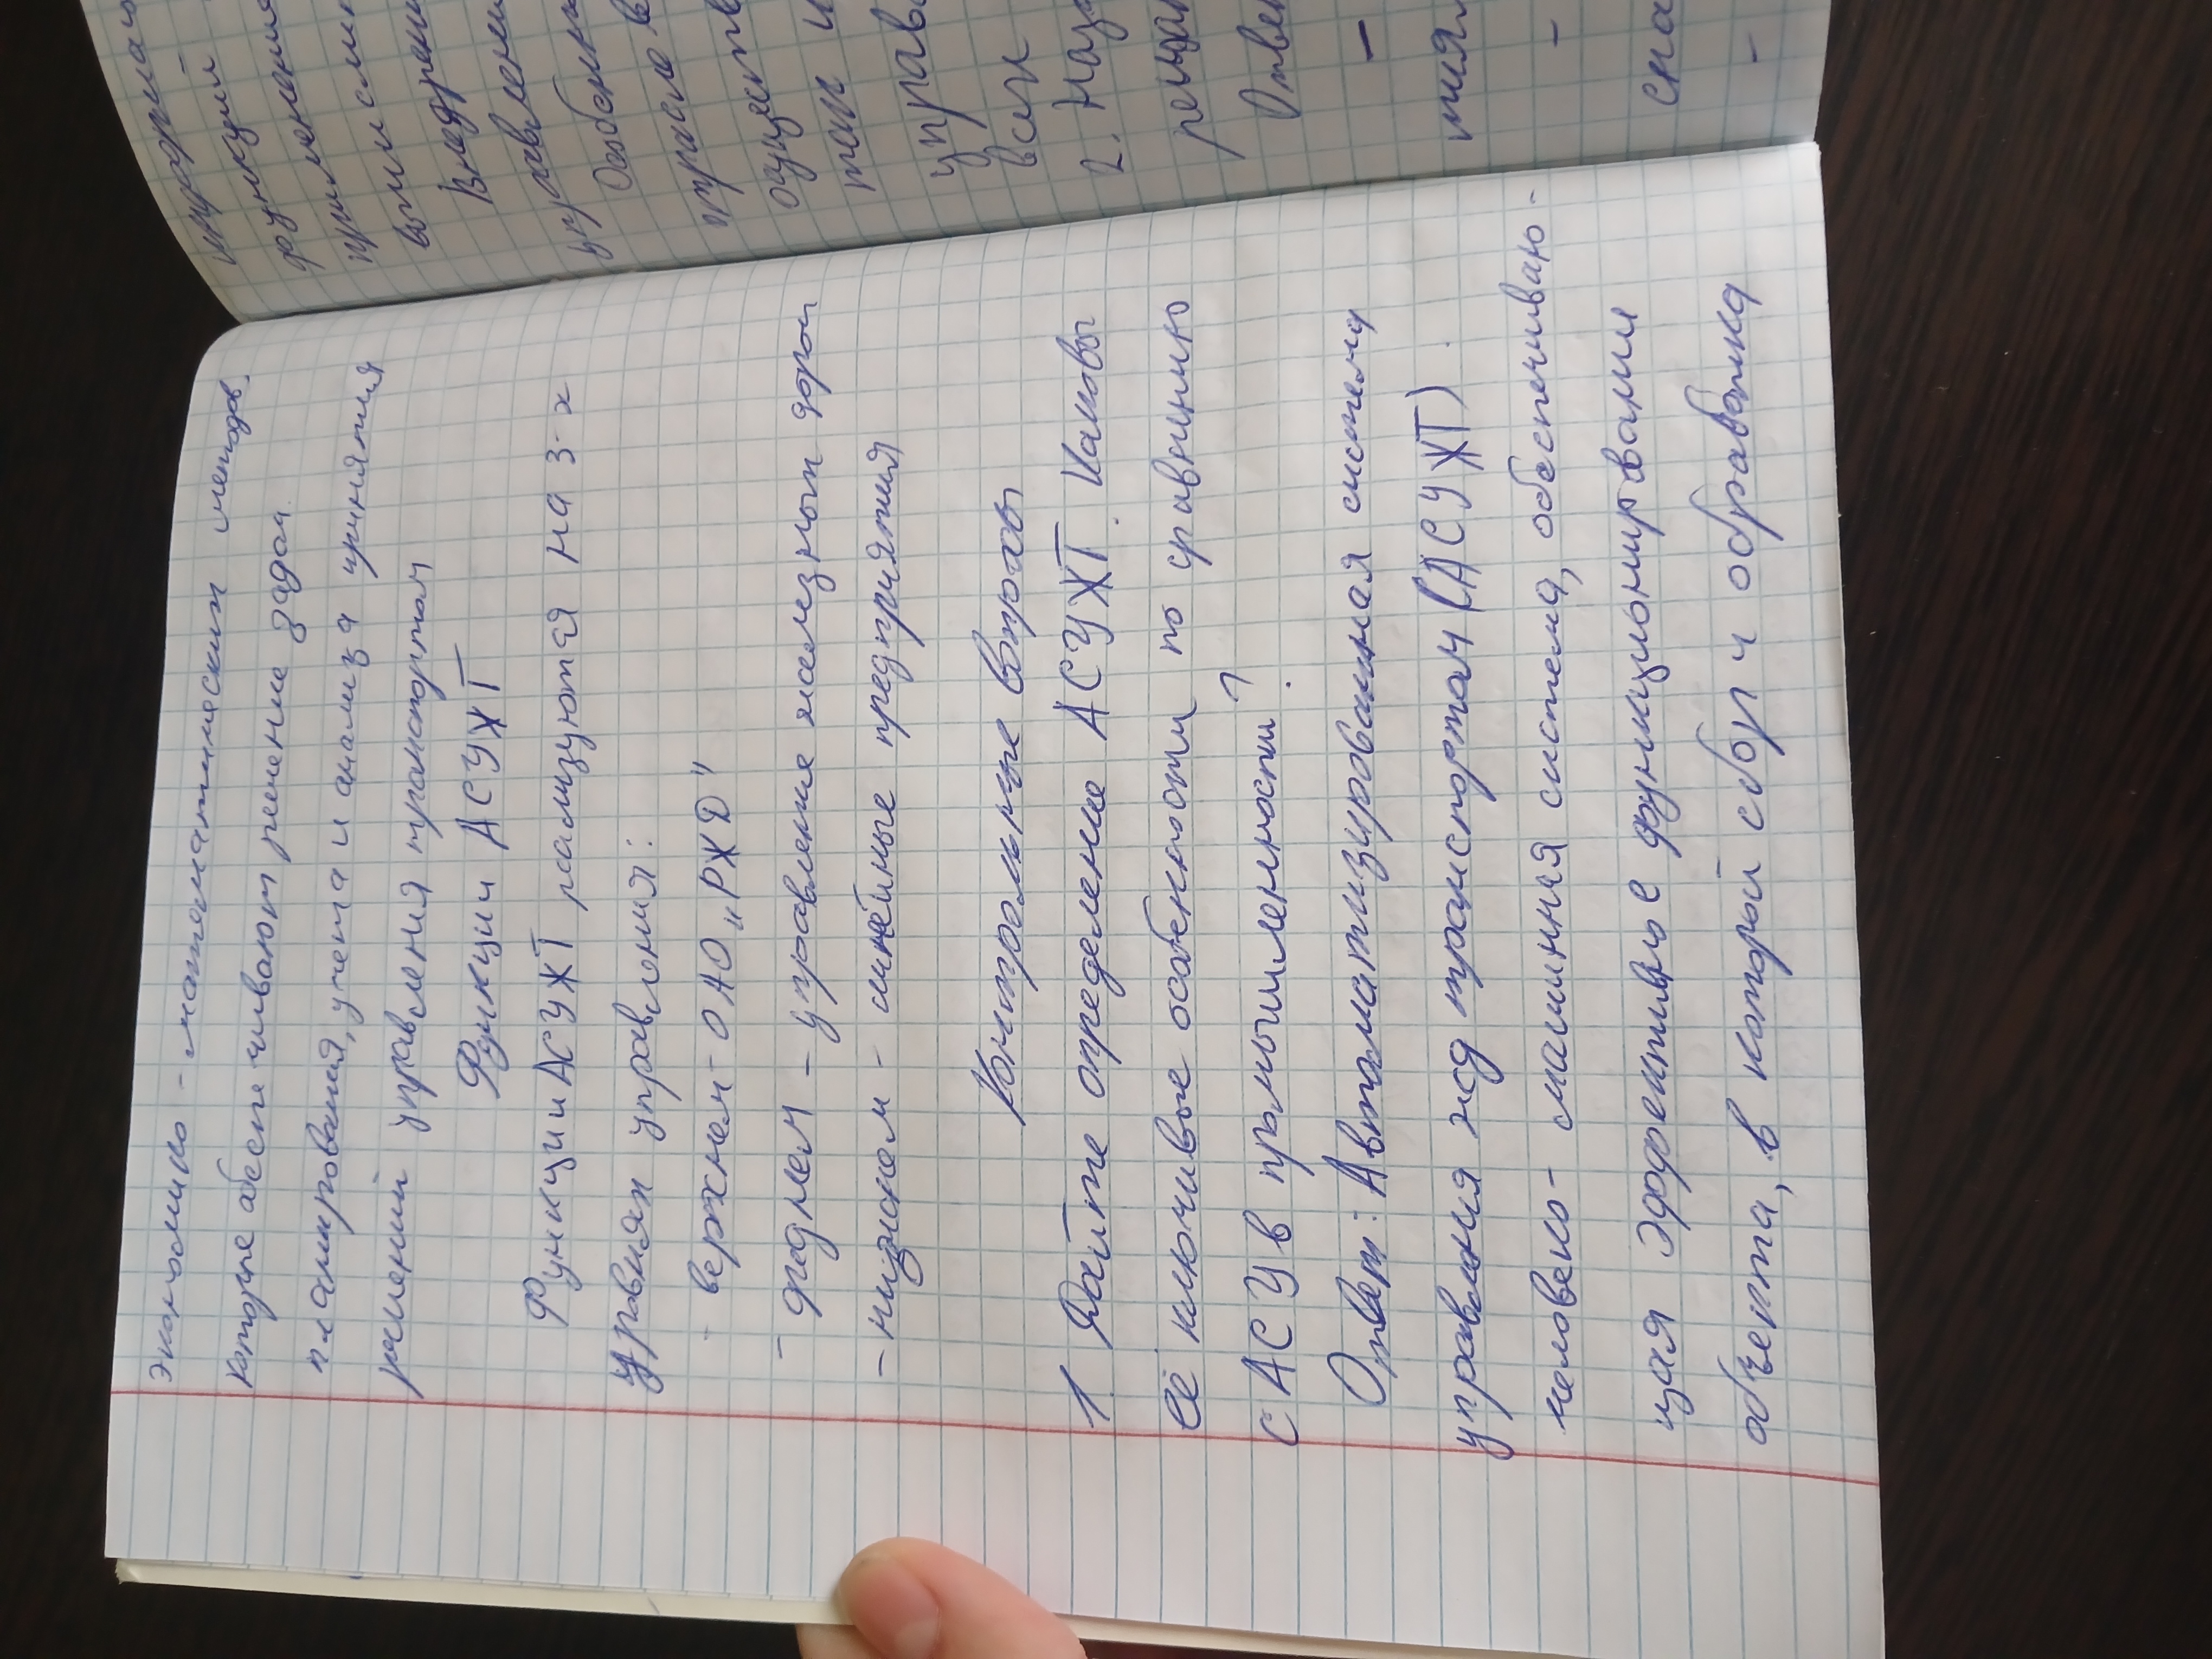 экономико - математических методов,
которые обеспечивают решение задач
планирования, учета и анализа принятия
решений управления транспортом
Функции АСУЖТ
Функции АСУЖТ реализуются на 3-х
уровнях управления:
- верхнем - ОАО „РЖД"
- среднем - управление железных дорог
- низжем - линейные предприятия
Контрольные вопросы
1. Дайте определение АСУЖТ. Каковы
её ключивые особенности по сравнению
с АСУ в промышленности?
Ответ: Автоматизированная система
управления жд транспортом (АСУЖТ)
человеко - машинная система, обеспечиваю-
щая эффективное функционировании
объекта, в которой сбор и обработка
информа
функций
применения
Внедрени
управлени
Особенн
отрасле в
осущеетв
так и
управ
всех
2. Наз
решa
Ответ
-
ния
-
сна
-